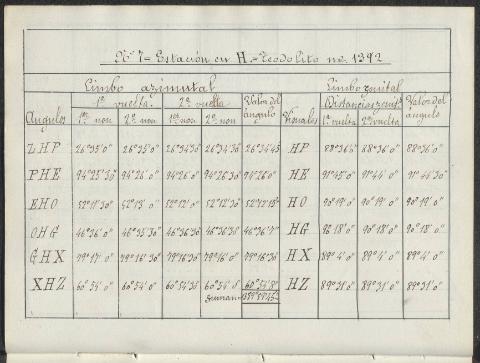 Nº 7 = Estación en H. = Teodolito nº 1392
Limbo azimutal Limbo zenital
1ª vuelta. 2ª vuelta Valor del ángulo Distancias zenit. Valor del ángulo
Angulos 1er non 2º non 1er non 2º non Visuales 1ª vuelta 2ª vuelta
ZHP 26°35'0" 26°35'0" 26°34'30" 26°34'30" 26°34'45 HP 88°36'0" 88°36'0" 88°36'0"
PHE 94°25'30" 94°26'0" 94°26'0" 94°26'30" 94°26'0" HE 91°45'0" 91°44'0" 91°44'30"
EHO 52°11'30" 52°13'0" 52°12'0" 52°12'30" HO 90°19'0" 90°19'0" 90°19'0"
OHG 46°36'0" 46°35'30" 46°36'30" 46°36'30" HG 90°18'0" 90°18'0" 90°18'0"
GHX 79°17'0" 79°16'30" 79°16'30" 79°16'0" 79°16'30" HX 89°4'0" 89°4'0" 89°4'0"
XHZ 60°54'0" 60°54'0" 60°54'30" 60°54'0" 60°54'8" HZ 89°31'0" 89°31'0" 89°31'0"
Suman 359°59'45"